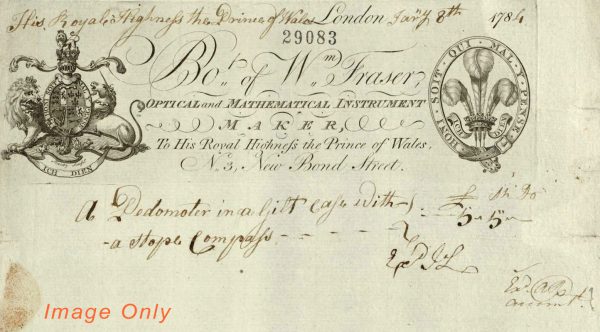 His Royal Highness the Prince of Wales London Jan.y 8th 178
29083
Bo.t of W.m Fraser,
OPTICAL and MATHEMATICAL INSTRUMENT
MAKER,
To His Royal Highness the Prince of Wales,
N.o 3, New Bond Street.
HONI · SOIT · QUI · MAL · Y · PENSE
ICH DIEN
A Pedometer in a Gilt Case with
a Stop & Compass
£ Sh
5 5
Image Only